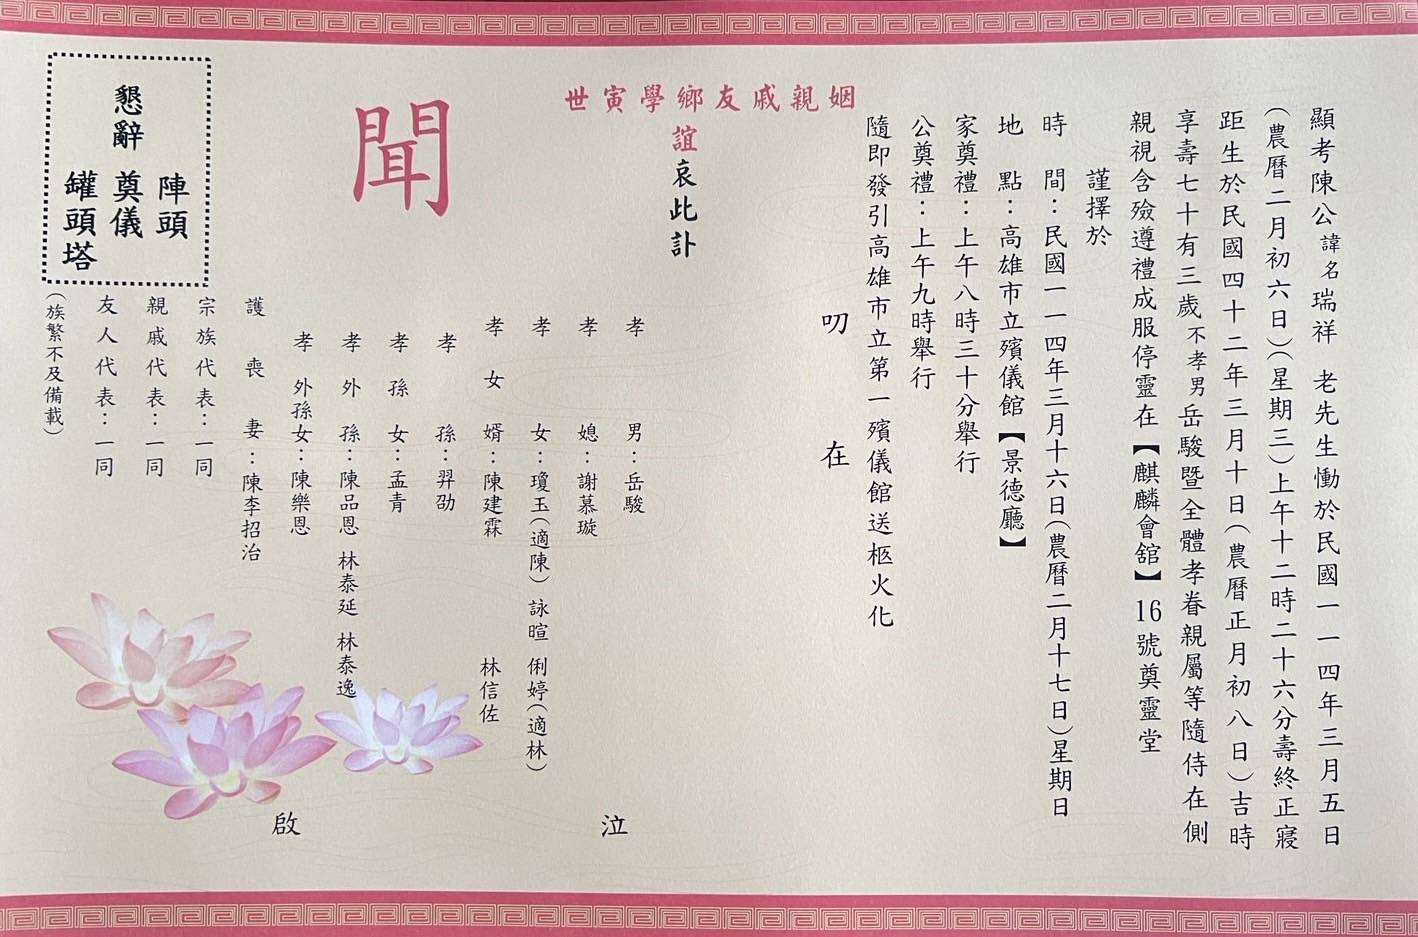 顯考陳公諱名瑞祥　老先生慟於民國一一四年三月五日
（農曆二月初六日）（星期三）上午十二時二十六分壽終正寢
距生於民國四十二年三月十日（農曆正月初八日）吉時
享壽七十有三歲不孝男岳駿暨全體孝眷親屬等隨侍在側
親視含殮遵禮成服停靈在【麒麟會舘】16號奠靈堂
謹擇於
時　間：民國一一四年三月十六日（農曆二月十七日）星期日
地　點：高雄市立殯儀館【景德廳】
家奠禮：上午八時三十分舉行
公奠禮：上午九時舉行
隨即發引高雄市立第一殯儀館送柩火化
叨　在
世寅學鄉友戚親姻
誼哀此訃
聞
泣
孝　男：岳駿
孝　媳：謝慕璇
孝　女：瓊玉（適陳）　詠暄　俐婷（適林）
孝女婿：陳建霖　林信佐
孝　孫：羿劭
孝孫女：孟青
孝外孫：陳品恩　林泰延　林泰逸
孝外孫女：陳樂恩
護喪妻：陳李招治
啟
宗族代表：一同
親戚代表：一同
友人代表：一同
（族繁不及備載）
懇辭
陣頭
奠儀
罐頭塔